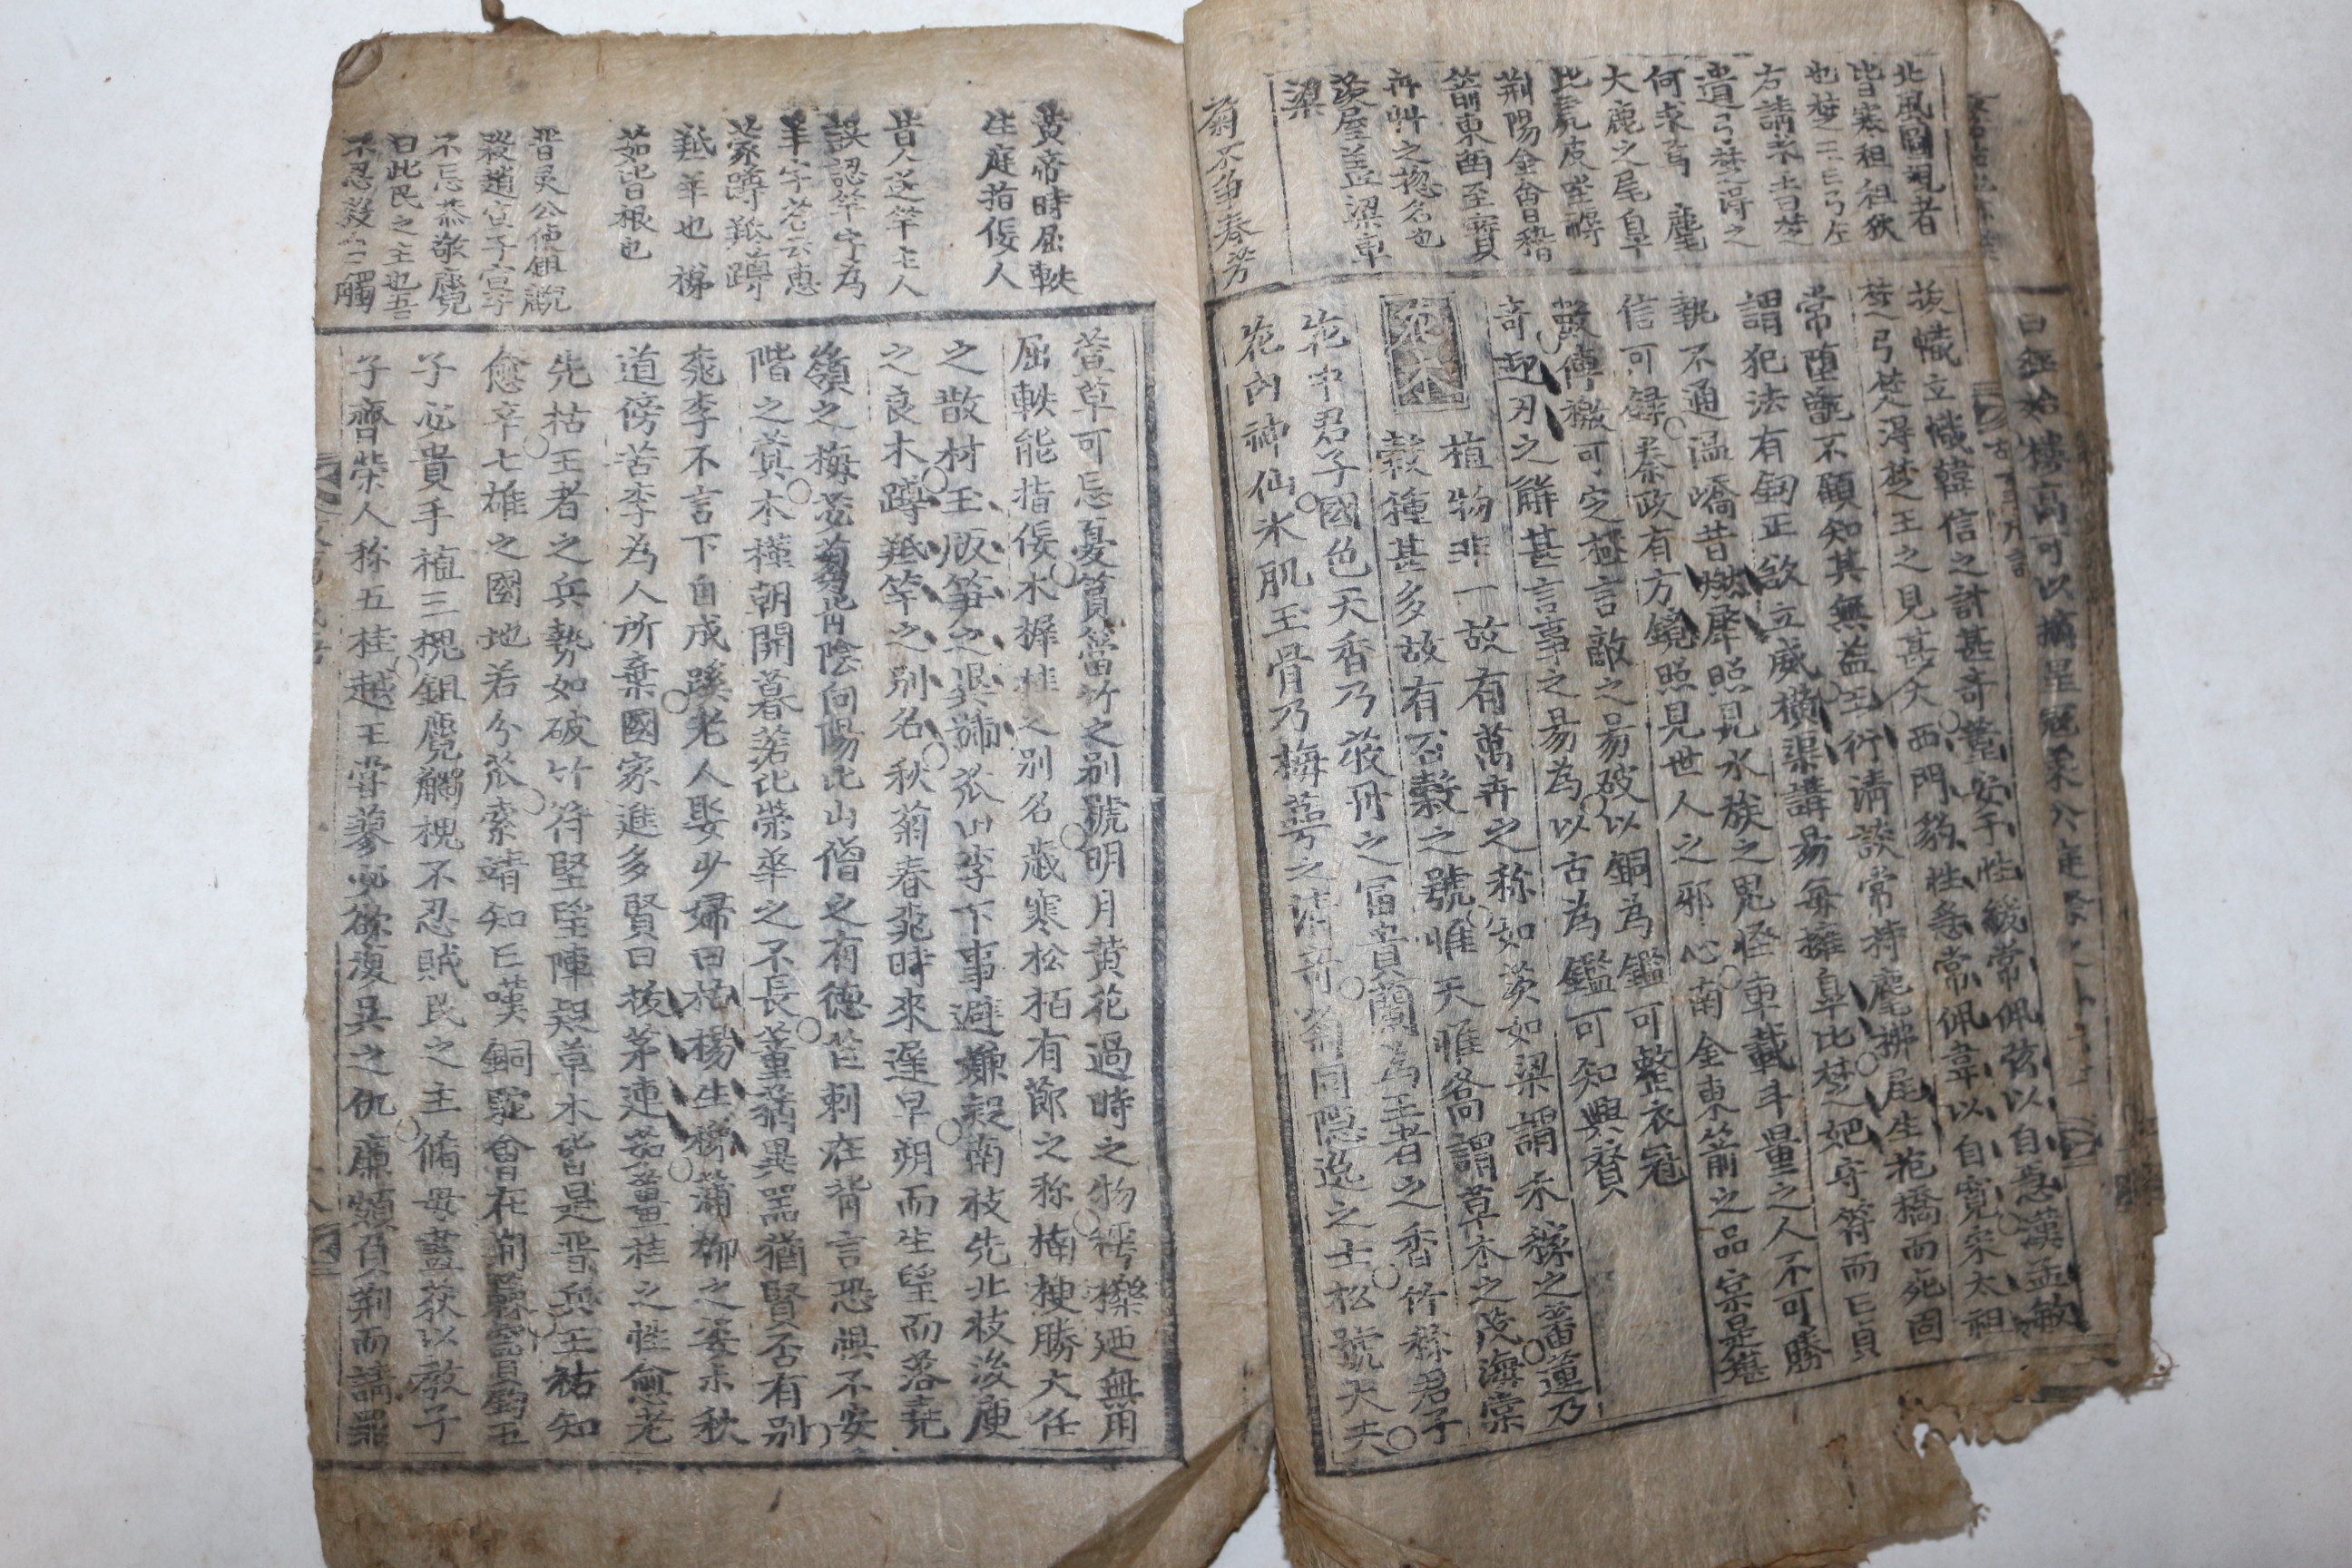 北風圖視者
皆寒狙狙狄
也楚王亡弓左
右請求之曰楚
遺弓楚得之
何求焉 麈
大鹿之尾皋
比虎皮坐褥
荊陽金會稽
箭東西至寶
卉艸之捴名也
茨屋盖梁車
梁
菊不爭春芳
拔幟立幟韓信之計甚奇董安于性緩常佩弦以自急漢孟敏
楚弓楚得楚王之見甚大西門豹性急常佩韋以自寬宋太祖
常墮甑不顧知其無益王衍清談常持麈拂尾生抱橋而死固
謂犯法有劍正欲立威橫渠講易每擁皐比楚妃守符而亡貞
執不通溫嶠昔燃犀照見水族之鬼怪車載斗量之人不可勝
信可錄秦政有方鏡照見世人之邪心南金東箭之品寔是堪
數傳檄可定極言敵之易破以銅為鑑可整衣冠
奇迎刃之觧甚言事之易為以古為鑑可知興賛
花木
植物非一故有萬卉之称如茨如梁謂禾稼之蕃蓮乃
穀種甚多故有百穀之號惟夭惟喬謂草木之茂海棠
花中君子國色天香乃牧丹之富貴蘭為王者之香竹稱君子
花內神仙氷肌玉骨乃梅萼之清奇菊同隱逸之士松號大夫
黃帝時屈軼
生庭指佞人
昔人送芋主人
誤認芋字為
羊字荅云惠
蒙蹲羝蹲
羝羊也 梯
茹皆根也
晋灵公使鉏麑
殺趙宣子宣子
不忘恭敬麑
曰此民之主也吾
不忍殺之觸
萱草可忘憂篔簹竹之别號明月黄花過時之物樗櫟廼無用
屈軼能指佞木樨桂之别名歲寒松栢有節之称楠楩勝大任
之散材玉版笋之異號瓜田李下事避嫌疑南枝先北枝後庾
之良木蹲羝竽之别名秋菊春桃時來遲早朔而生望而落堯
嶺之梅苾蒭背陰向陽比山僧之有德芒刺在背言恐惧不安
階之蓂木槿朝開暮落比榮華之不長薰蕕異器猶賢否有别
桃李不言下自成蹊老人娶少婦曰枯楊生稊蒲柳之姿未秋
道傍苦李為人所棄國家進多賢曰拔茅連茹薑桂之性愈老
先枯王者之兵勢如破竹苻堅望陣疑草木皆是晋兵王祐知
愈辛七雄之國地若分瓜索靖知亡嘆銅駝會在荆棘竇鈞五
子必貴手植三槐鉏麑觸槐不忍賊民之主脩母畫荻以教子
子齊荣人称五桂越王嘗蓼必欲復吳之仇廉頗負荆而請罪